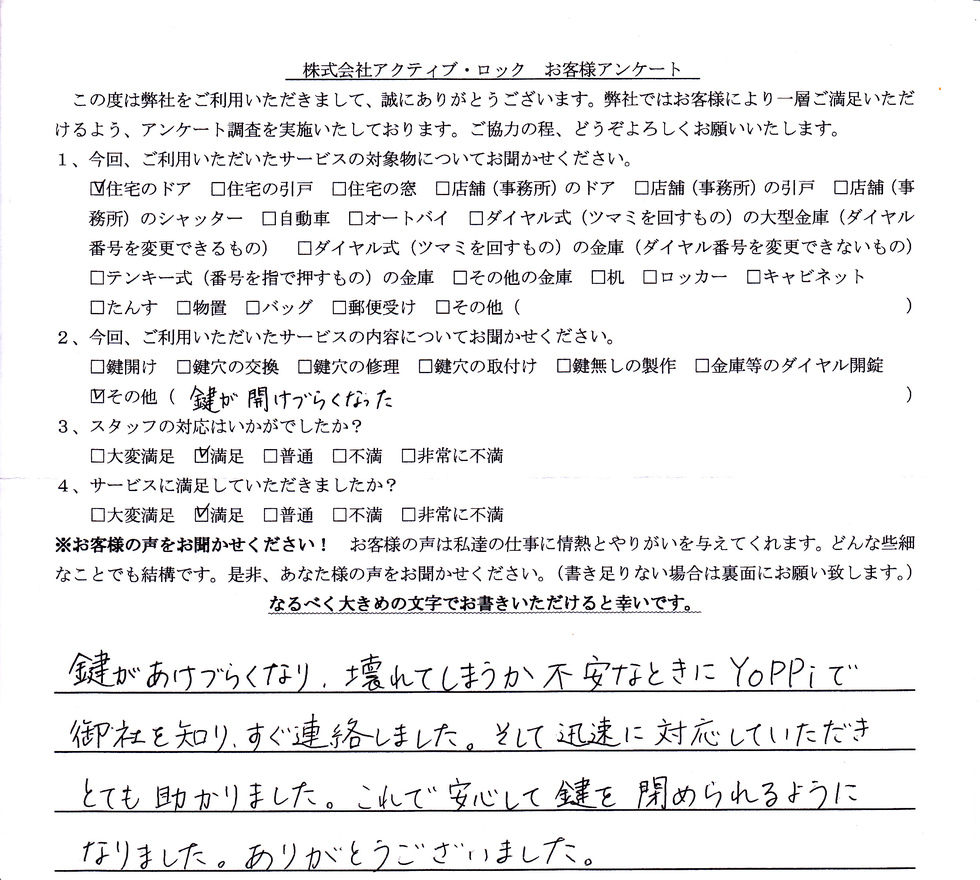 株式会社アクティブ・ロック　お客様アンケート
この度は弊社をご利用いただきまして、誠にありがとうございます。弊社ではお客様により一層ご満足いただ
けるよう、アンケート調査を実施いたしております。ご協力の程、どうぞよろしくお願いいたします。
１、今回、ご利用いただいたサービスの対象物についてお聞かせください。
☑住宅のドア　□住宅の引戸　□住宅の窓　□店舗（事務所）のドア　□店舗（事務所）の引戸　□店舗（事
務所）のシャッター　□自動車　□オートバイ　□ダイヤル式（ツマミを回すもの）の大型金庫（ダイヤル
番号を変更できるもの）　□ダイヤル式（ツマミを回すもの）の金庫（ダイヤル番号を変更できないもの）
□テンキー式（番号を指で押すもの）の金庫　□その他の金庫　□机　□ロッカー　□キャビネット
□たんす　□物置　□バッグ　□郵便受け　□その他（　　　）
２、今回、ご利用いただいたサービスの内容についてお聞かせください。
□鍵開け　□鍵穴の交換　□鍵穴の修理　□鍵穴の取付け　□鍵無しの製作　□金庫等のダイヤル開錠
☑その他（ 鍵が開けづらくなった　　　）
３、スタッフの対応はいかがでしたか？
□大変満足　☑満足　□普通　□不満　□非常に不満
４、サービスに満足していただきましたか？
□大変満足　☑満足　□普通　□不満　□非常に不満
※お客様の声をお聞かせください！　お客様の声は私達の仕事に情熱とやりがいを与えてくれます。どんな些細
なことでも結構です。是非、あなた様の声をお聞かせください。（書き足りない場合は裏面にお願い致します。）
なるべく大きめの文字でお書きいただけると幸いです。
鍵があけづらくなり、壊れてしまうか不安なときにYoPPiで
御社を知り、すぐ連絡しました。そして迅速に対応していただき
とても助かりました。これで安心して鍵を閉められるように
なりました。ありがとうございました。